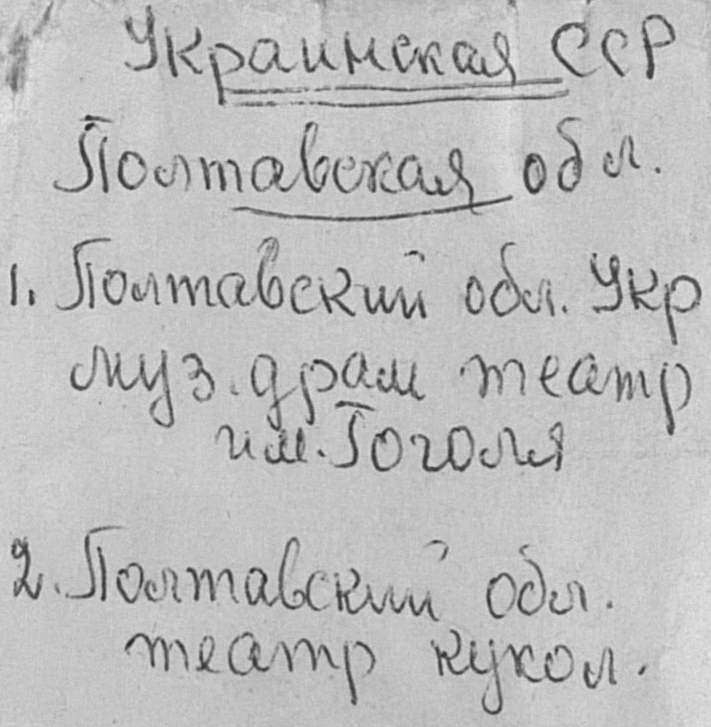 Украинская ССР
Полтавская обл.
1. Полтавский обл. Укр
муз. драм театр
им. Гоголя
2. Полтавский обл.
театр кукол.